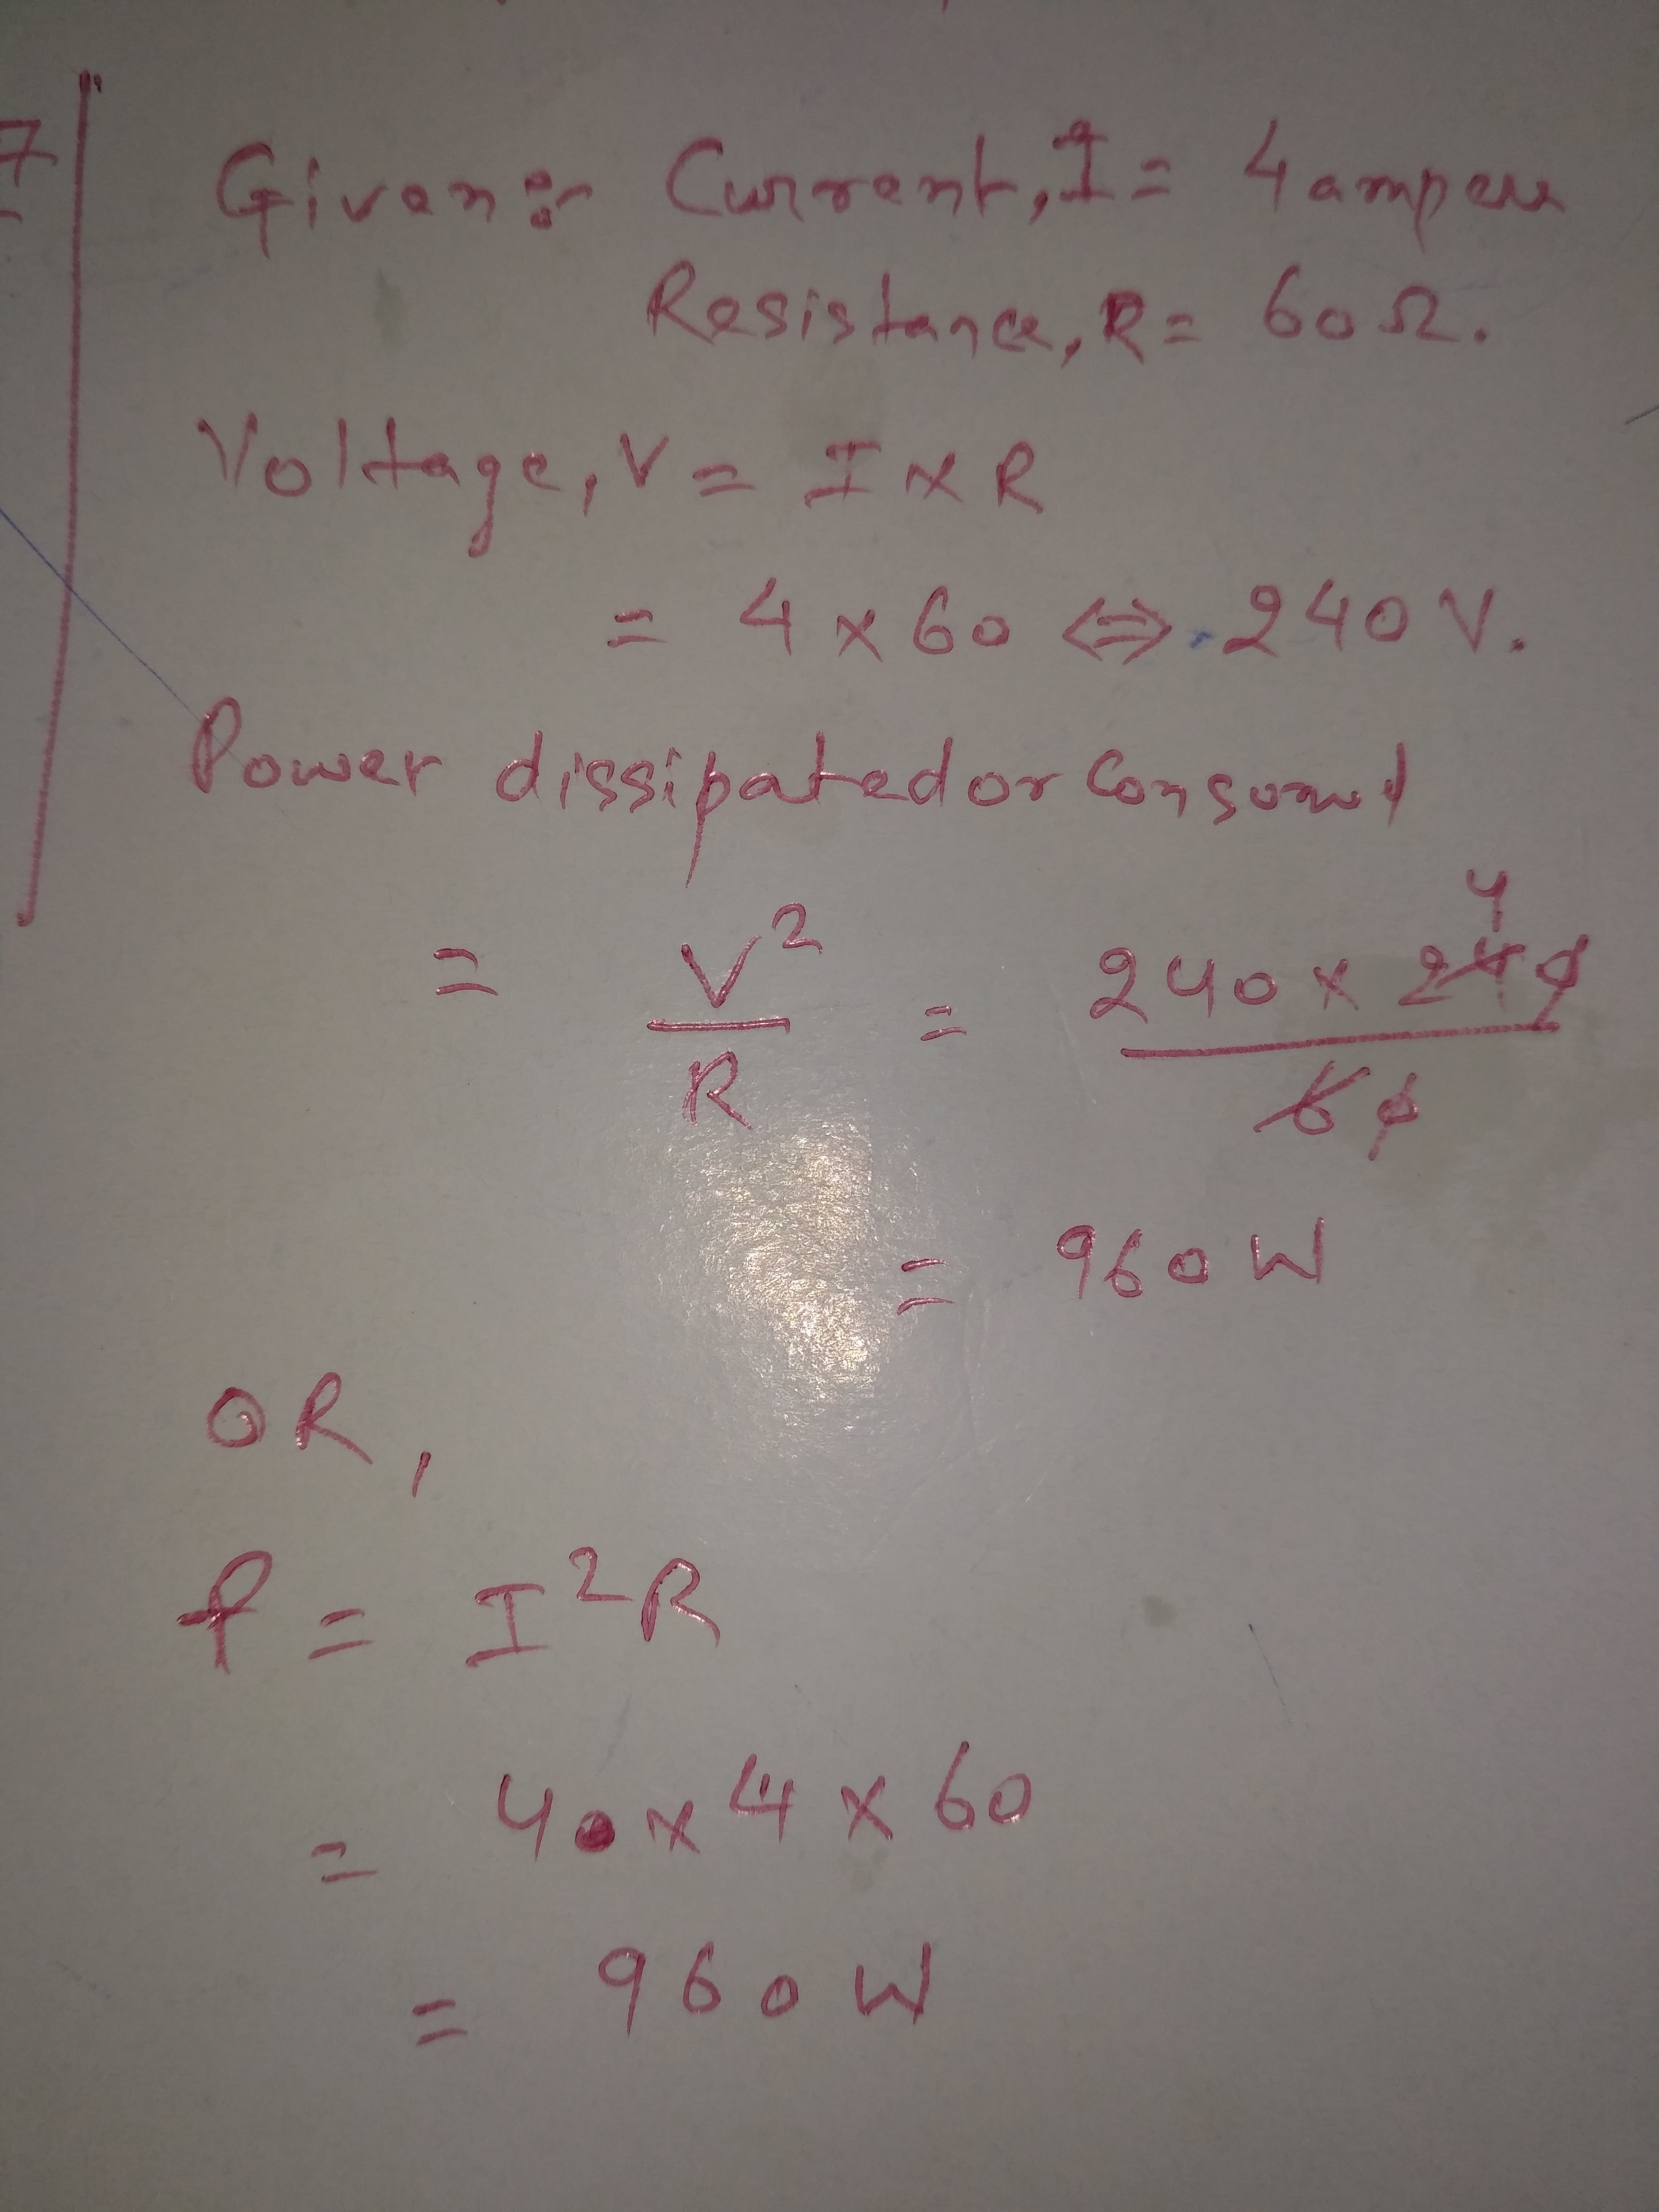 7
Given:- Current, I = 4 ampere
Resistance, R = 60Ω.
Voltage, V = I x R
= 4 x 60 ⇔ 240 V.
Power dissipated or Consumed
4
= V² / R = 240 x 240 / 60
= 960 W
OR,
P = I²R
= 4 x 4 x 60
= 960 W